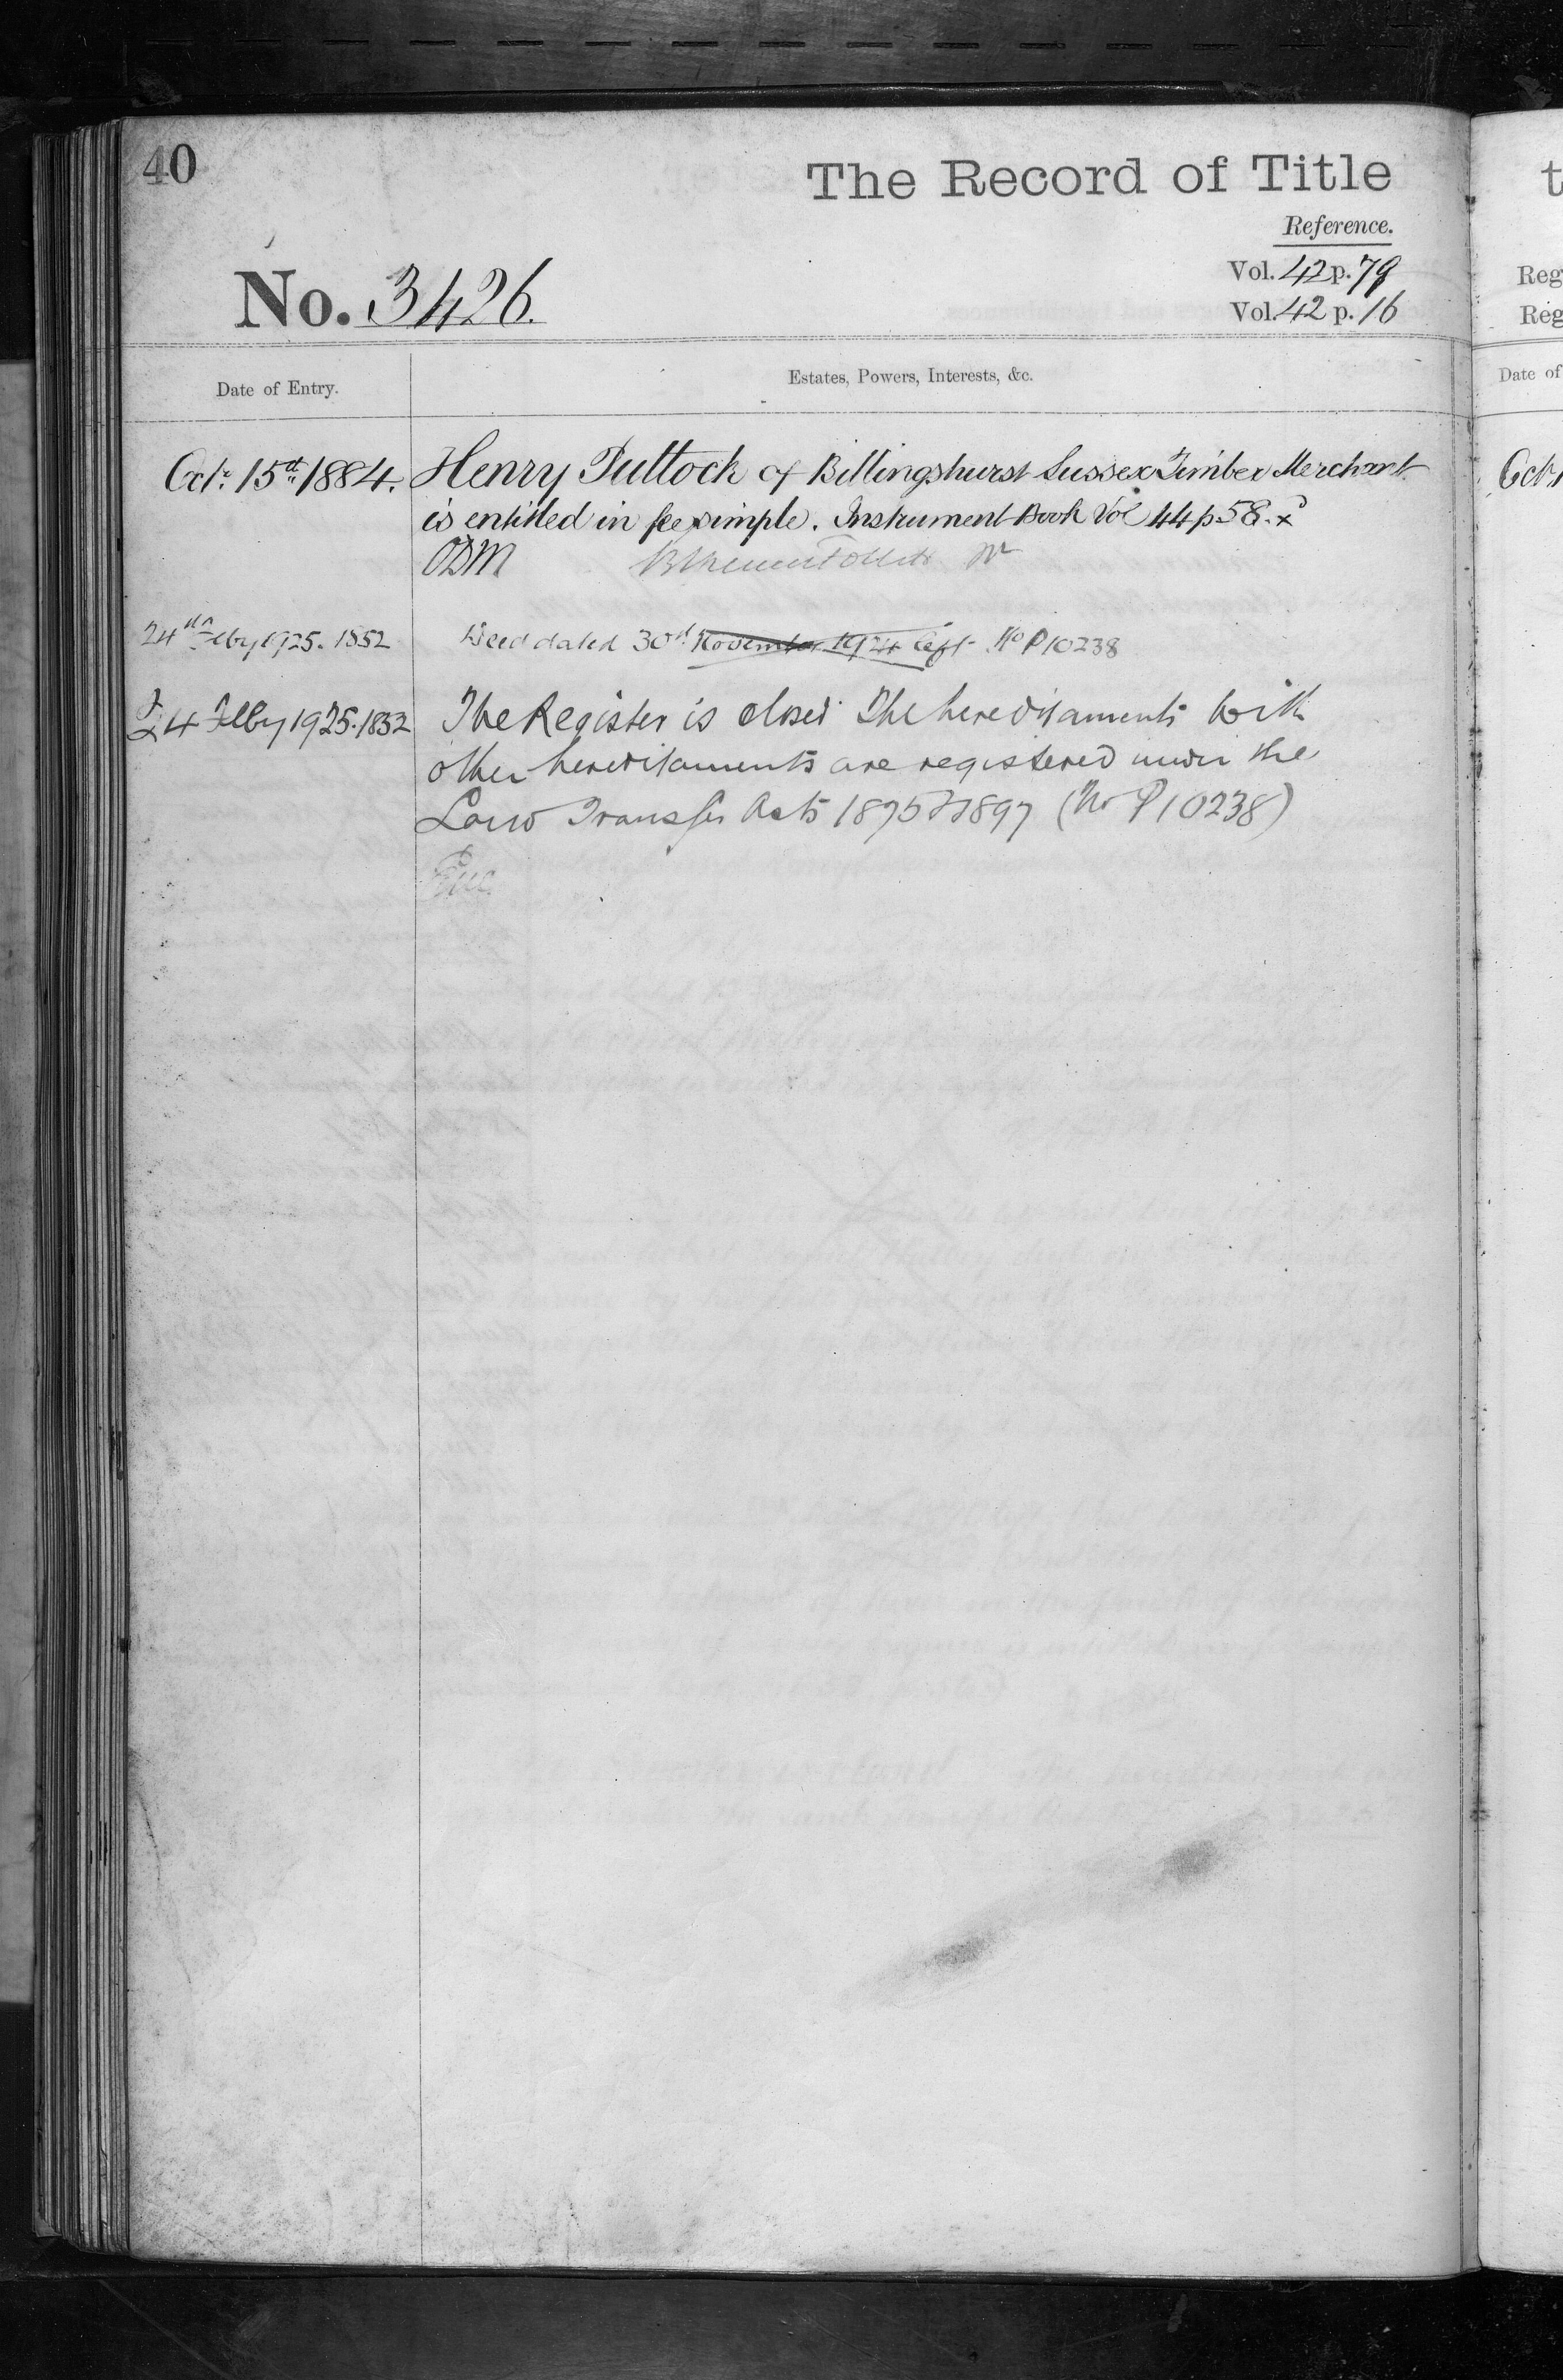 40
The Record of Title
Reference.
No. 3426.
Vol. 42 p. 79
Vol. 42 p. 16
Date of Entry.
Estates, Powers, Interests, &c.
Oct: 15th 1884. Henry Puttock of Billingshurst Sussex Timber Merchant
is entitled in fee simple. Instrument Book Vol 44 p 58. x
ODM
24th Feby 1925. 1852 Deed dated 30th November 1924 left No P10238
24 Feby 1925. 1852 The Register is closed The hereditaments with
other hereditaments are registered under the
Land Transfer Acts 1875 & 1897 (No P10238)
t
Reg
Reg
Date of
Oct